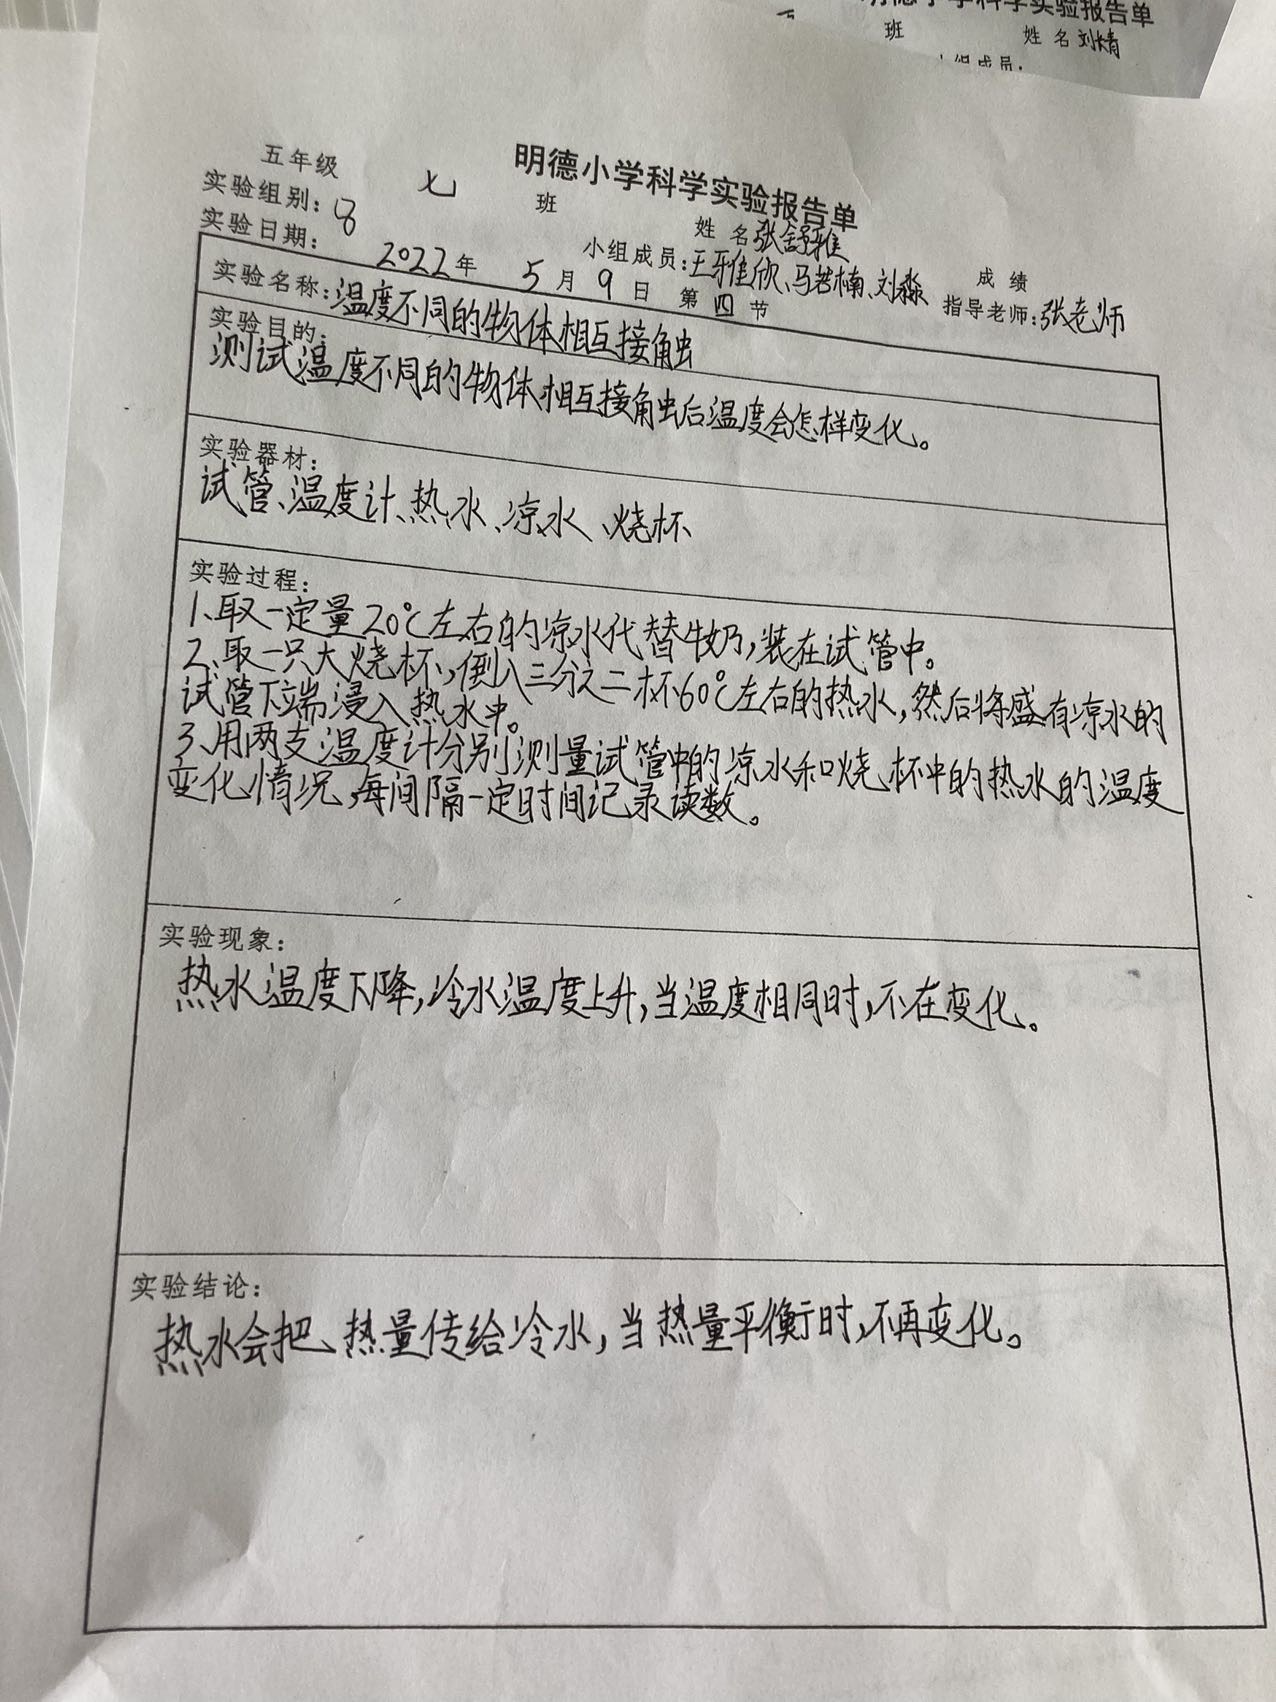 明德小学科学实验报告单
班 姓 名 刘婧
小组成员:
明德小学科学实验报告单
五年级 七 班 姓 名 张舒雅 成 绩
实验组别: 8 小组成员: 王雅欣、马若楠、刘淼 指导老师: 张老师
实验日期: 2022 年 5 月 9 日 第 四 节
实验名称: 温度不同的物体相互接触
实验目的:
测试温度不同的物体相互接触后温度会怎样变化。
实验器材:
试管、温度计、热水、凉水、烧杯
实验过程:
1、取一定量20℃左右的凉水代替牛奶,装在试管中。
2、取一只大烧杯,倒入三分之二杯60℃左右的热水,然后将盛有凉水的
试管下端浸入热水中。
3、用两支温度计分别测量试管中的凉水和烧杯中的热水的温度
变化情况,每间隔一定时间记录读数。
实验现象:
热水温度下降,冷水温度上升,当温度相同时,不在变化。
实验结论:
热水会把热量传给冷水,当热量平衡时,不再变化。